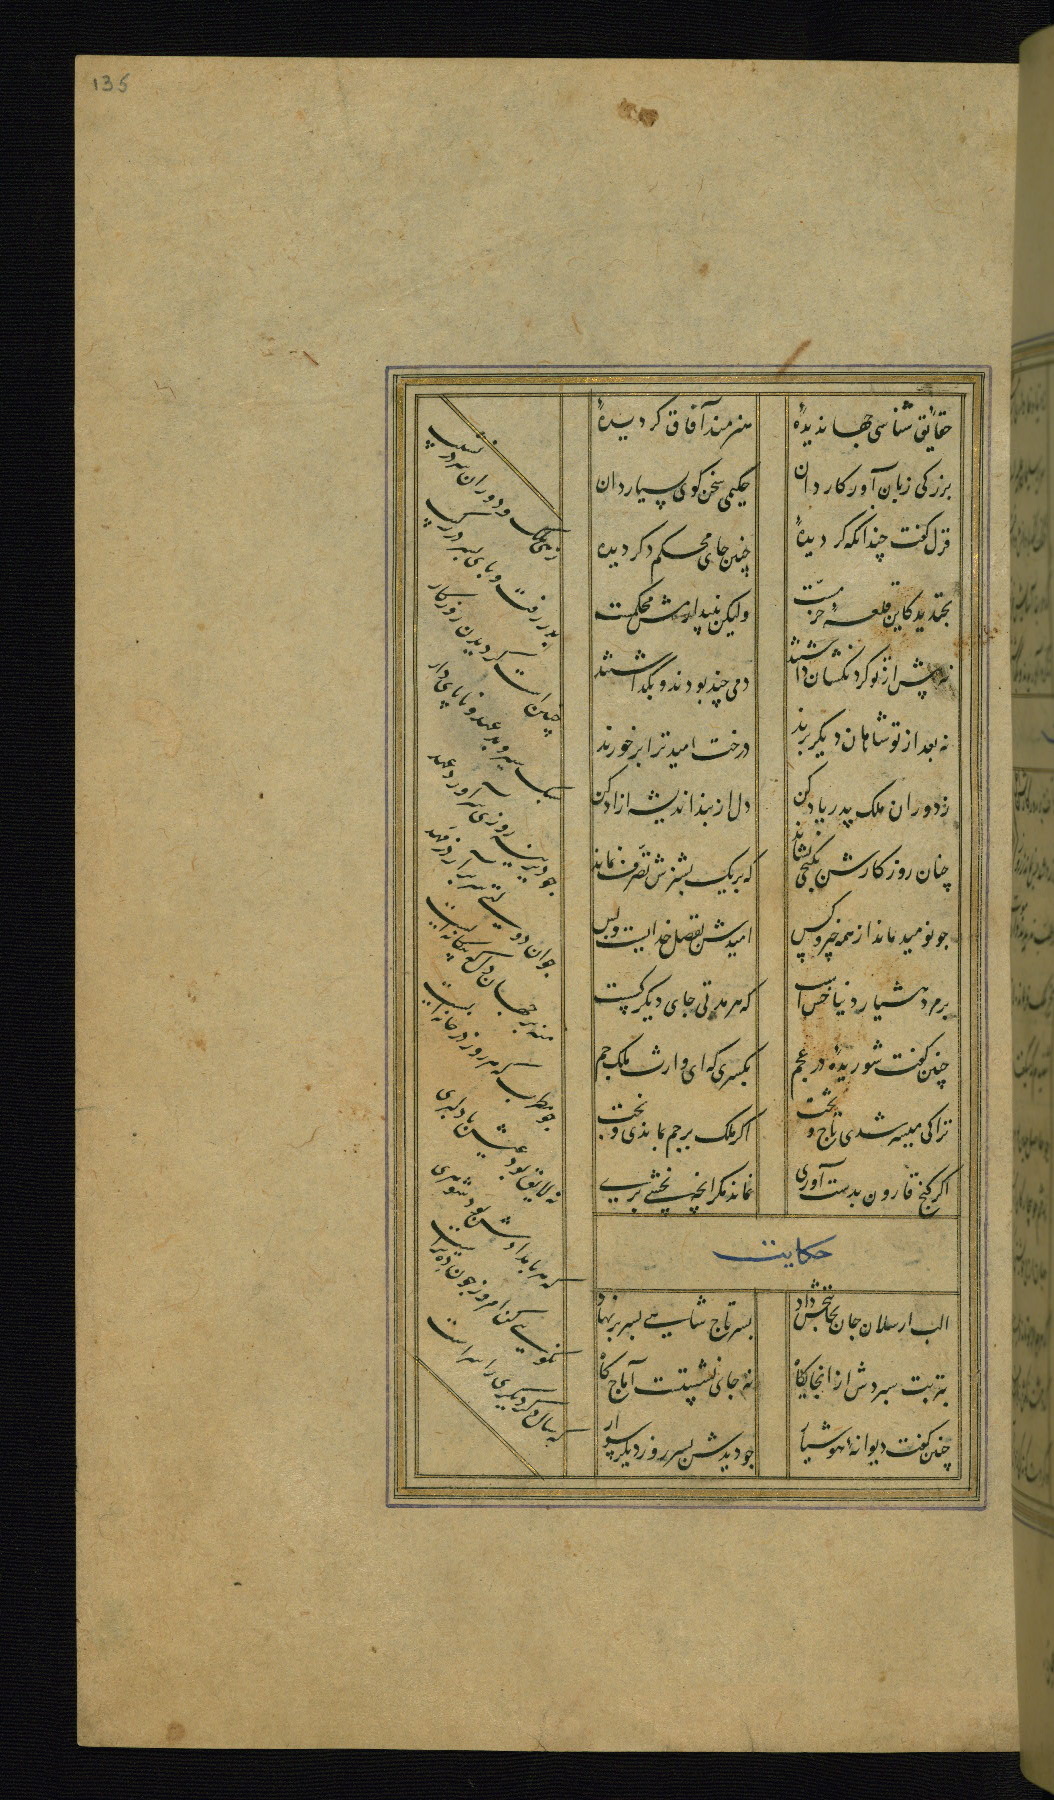 135
حقایق شناسی جهاندیدهٔ
هنرمند آفاق کردیدهٔ
بزرکی زبان آور کاردان
حکیمی سخن کوی بسیاردان
قزل کفت چندانکه کردیدهٔ
چنین جای محکم دکر دیده
بخندید کاین قلعهٔ خرمست
ولیکن نپندارمش محکمست
نه پیش از تو کردنکشان داشتند
دمی چند بودند و بکذاشتند
نه بعد از تو شاهان دیکر برند
درخت امید ترا بر خورند
ز دوران ملک پدر یاد کن
دل از بند اندیشه ازاد کن
چنان روزکارش بکنجی نشاند
که بر یک پشیزش تصرف نماند
جو نومید ماند از همه چیز و کس
امیدش بفضل خدایست و بس
بر مرد هشیار دنیا خس است
که هر مدتی جای دیکر کسست
چنین کفت شوریدهٔ در عجم
بکسری که ای وارث ملک جم
اکر ملک بر جم بماندی و بخت
ترا کی میسر شدی تاج و تخت
اکر کنج قارون بدست آوری
نماند مکر انچه بخشی بری
حکایت
الب ارسلان جان بجانبخش داد
بسر تاج شاهی بسر بر نهاد
بتربت سپردش از انجایکاه
نه جای نشستست آماج کاه
چنین کفت دیوانهٔ هوشیار
جو دیدش بسر روز دیکر سوار
زهی ملک و دوران سر در نشیب
بدر رفت و پای بسر در رکیب
چنین است کردیدن روزکار
سبک سیر و بد عهد و ناپای دار
جو دیرینه روزی سر آورد عهد
جوان دولتی سر برآرد ز مهد
منه بر جهان دل که بیکانه ایست
جو مطرب که هر روز در خانه ایست
نه لایق بود عیش با دلبری
که هر بامدادش بود شوهری
نکویی کن امروز جون ده تراست
که سال دکر دیکری راسراست